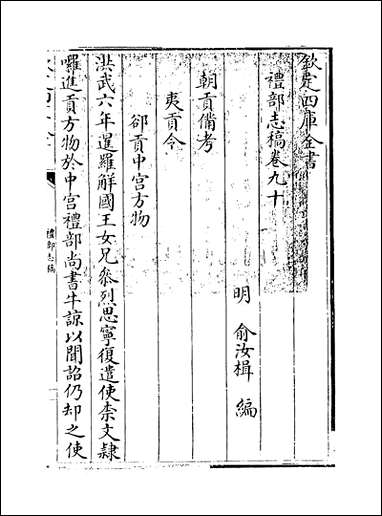 欽定四庫全書
禮部志稿卷九十
明 俞汝楫 編
朝貢備考
夷貢今
卻貢中宫方物
洪武六年暹羅斛國王女兄叅烈思寧復遣使柰文隷
囉進貢方物於中宫禮部尚書牛諒以聞詔仍却之使
禮部志稿